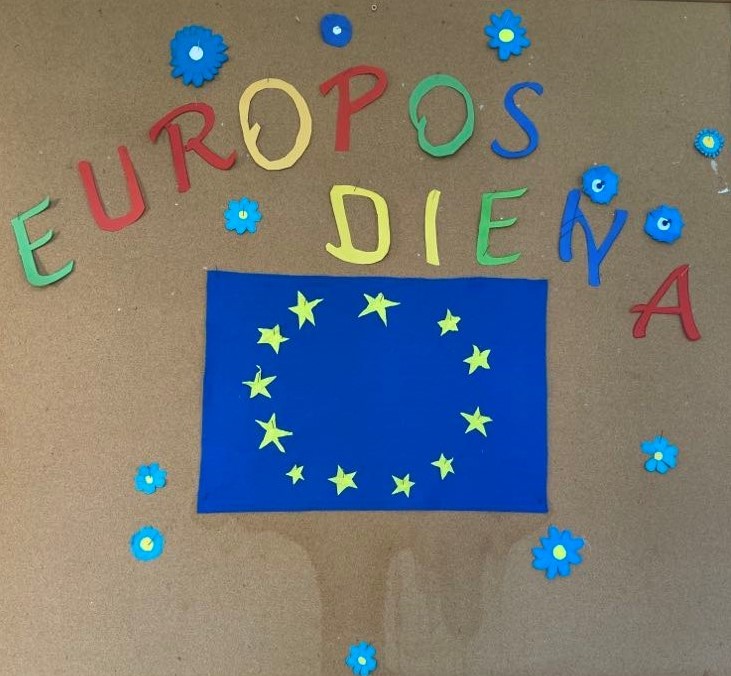 EUROPOS
DIENA